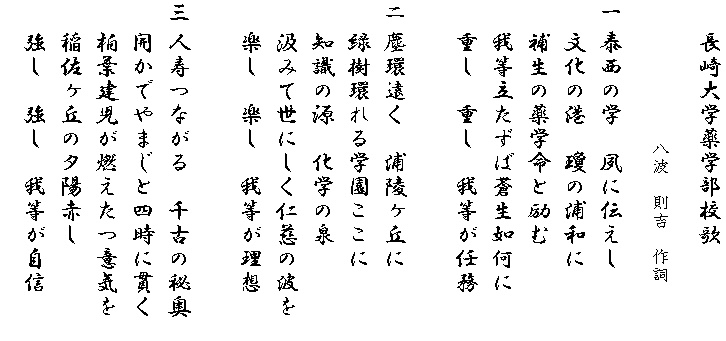 長崎大学薬学部校歌
八波 則吉 作詞
一 泰西の学 夙に伝えし
文化の港 瓊の浦和に
補生の薬学命と励む
我等立たずば蒼生如何に
重し 重し 我等が任務
二 塵環遠く 浦陵ヶ丘に
緑樹環れる学園ここに
知識の源 化学の泉
汲みて世にしく仁慈の波を
楽し 楽し 我等が理想
三 人寿つながる 千古の秘奥
開かでやまじと四時に貫く
柏葉健児が燃えたつ意気を
稲佐ヶ丘の夕陽赤し
強し 強し 我等が自信